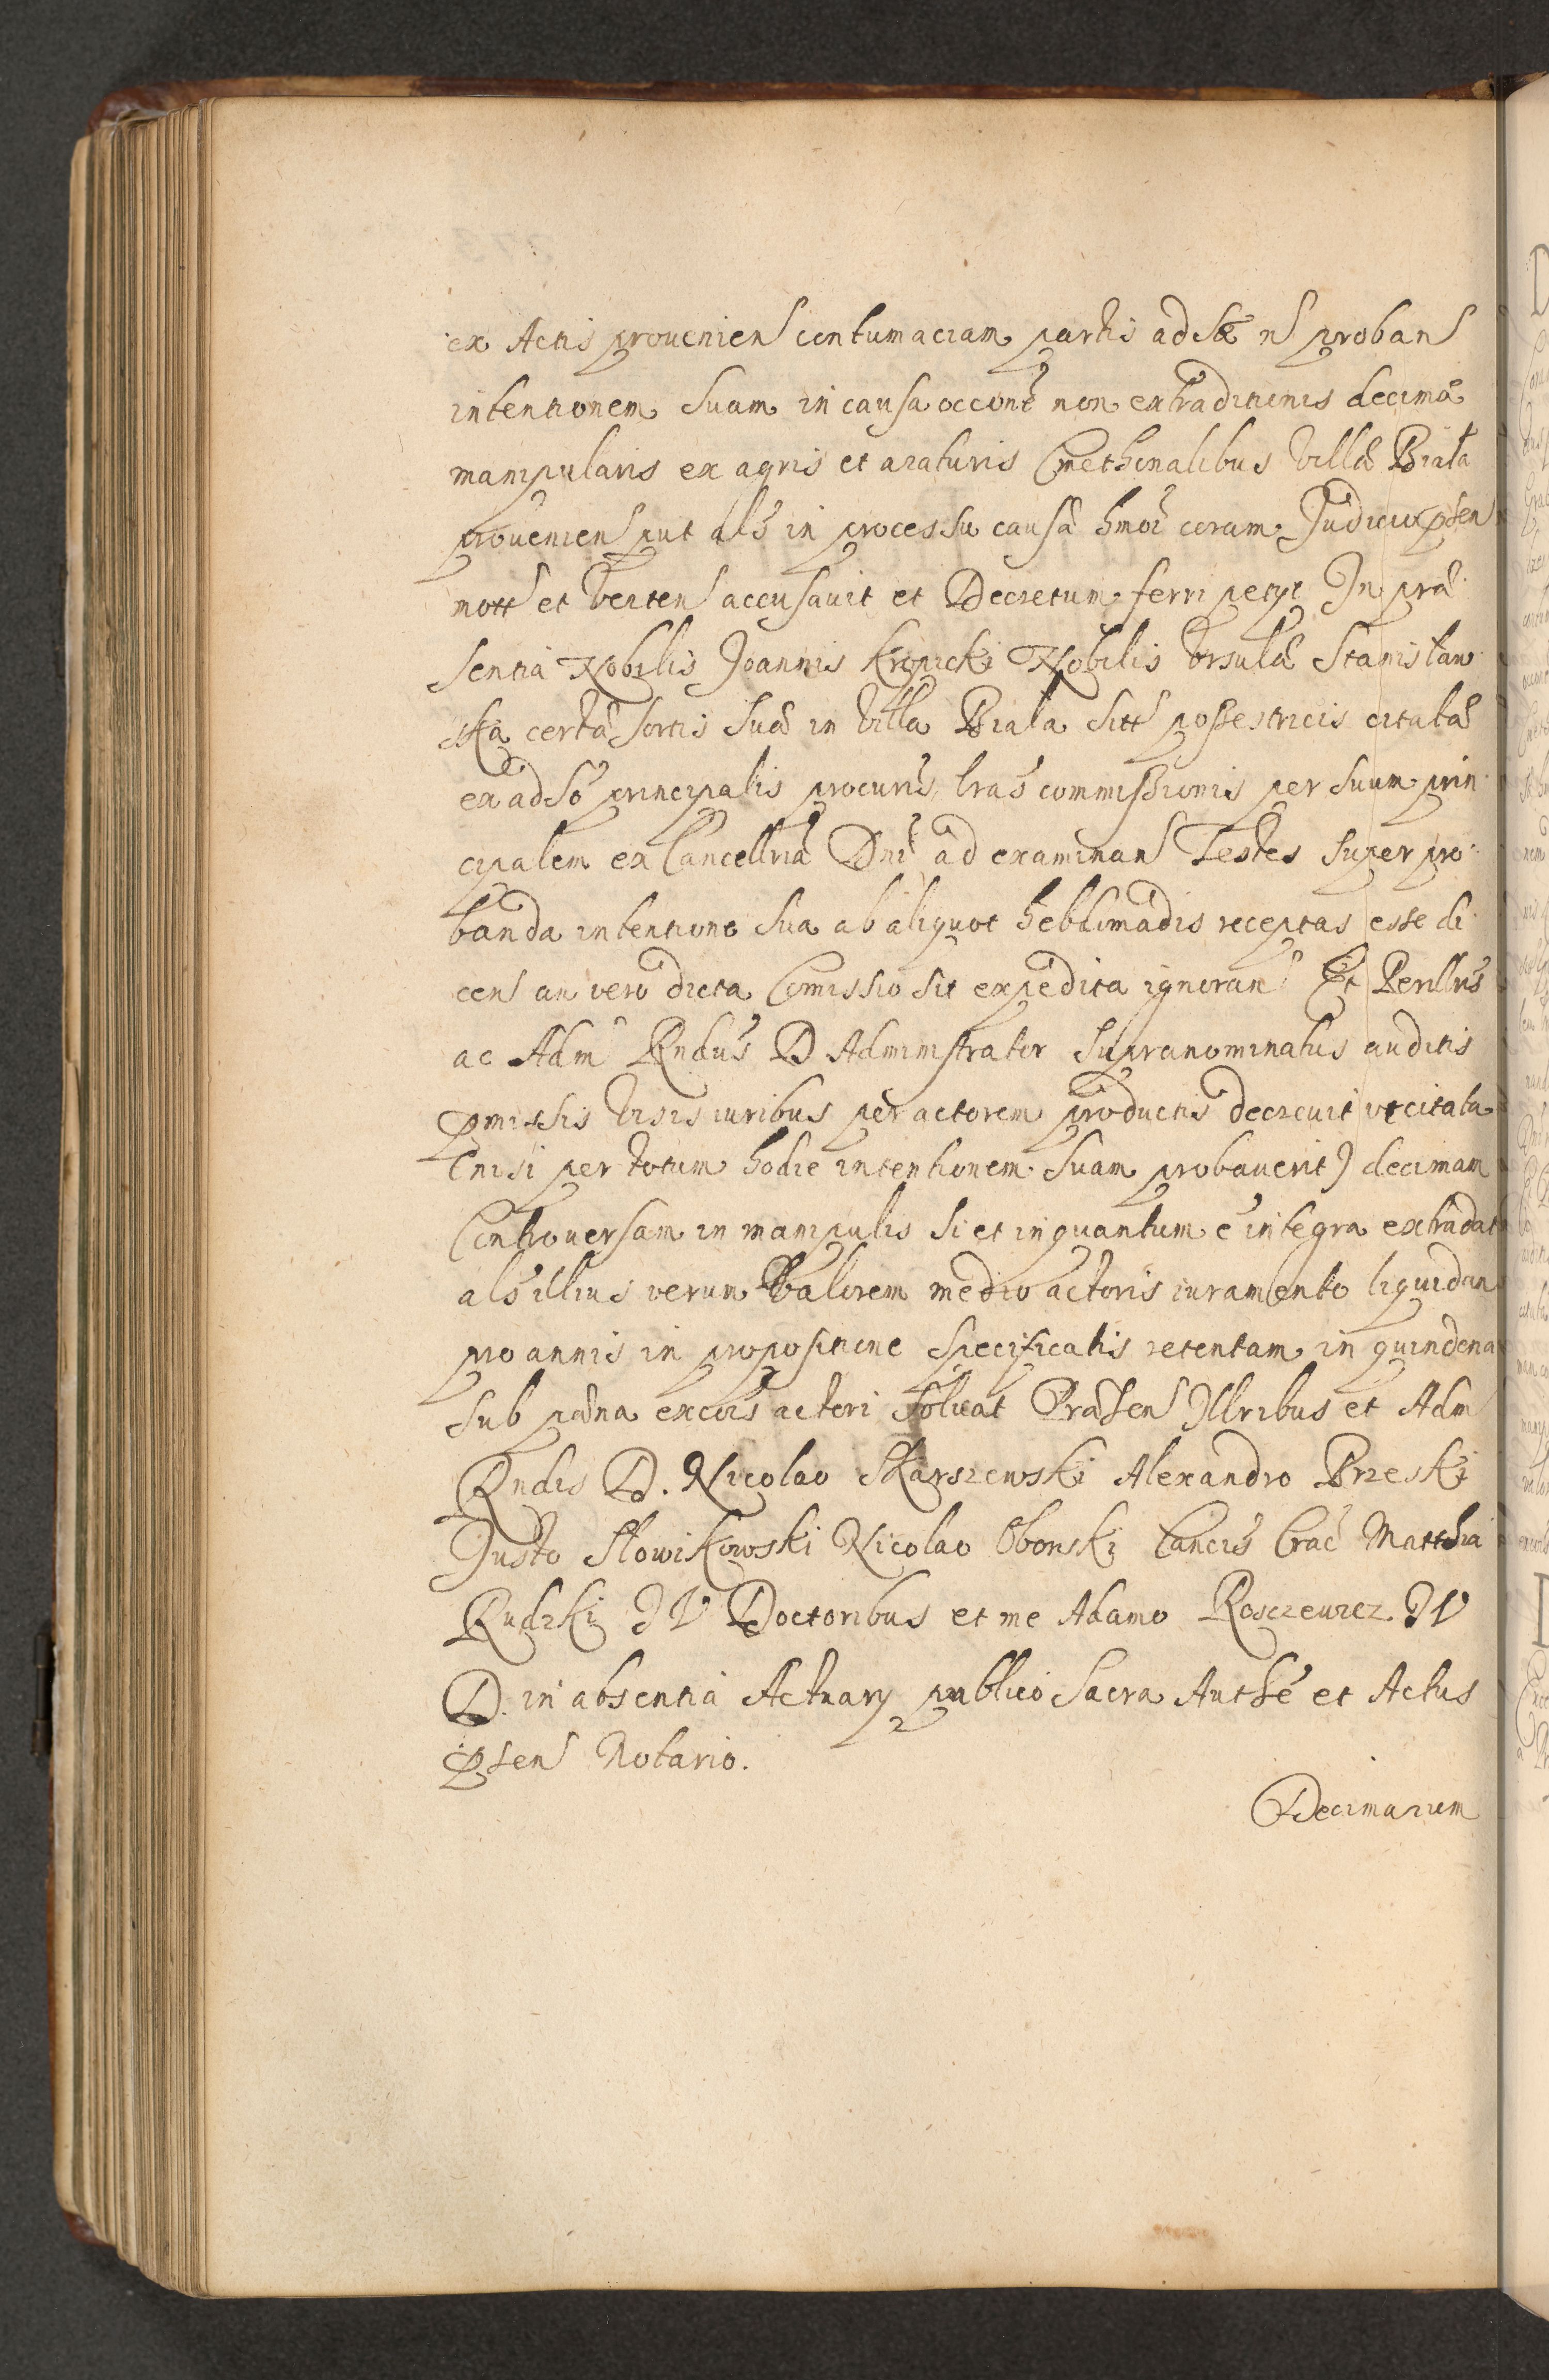 ex Actis prouenien contumaciam partis adsae n proban
intentionem suam in causa occone non extraditionis decimae
manipularis ex agris et araturis Cmethonalibus Villae Biała
prouenien put als in processu causae hmoi coram Judicio psen
mott et verten accusauit et Decretum ferri petyt In prae
sentia Nobilis Joannis Kropicki Nobilis Vrsulae Stanisław
ska certae sortis suae in Villa Biala sitt possestricis citatae
ex adso principalis procuris lras commissionis per suum prin
cipalem ex Cancellria Dni ad examinan Testes super pro
banda intentione sua ab aliquot hebdomadis receptas esse di
cen an vero dicta Comissio sit expedita ignoran Et Perillris
ac Adm Rndus D Administrator supranominatus auditis
pmissis visis iuribus per actorem productis decreuit vt citata
(nisi per totum hodie intentionem suam probauerit) decimam
Controuersam in manipulis si et in quantum e integra extradat
als illius verum valorem medio actoris iuramento liquidan
pro annis in propositione specificatis retentam in quindena
sub paena excois actori soluat Praesen Illribus et Adm
Rndis D. Nicolao Skarszewski Alexandro Brzeski
Justo Słowikowski Nicolao Oborski Cancis Crac Matthia
Rudzki JV Doctoribus et me Adamo Roszewicz JV
D. in absentia Actuarÿ publico Sacra Authe et Actus
psen Notario.
Decimarum